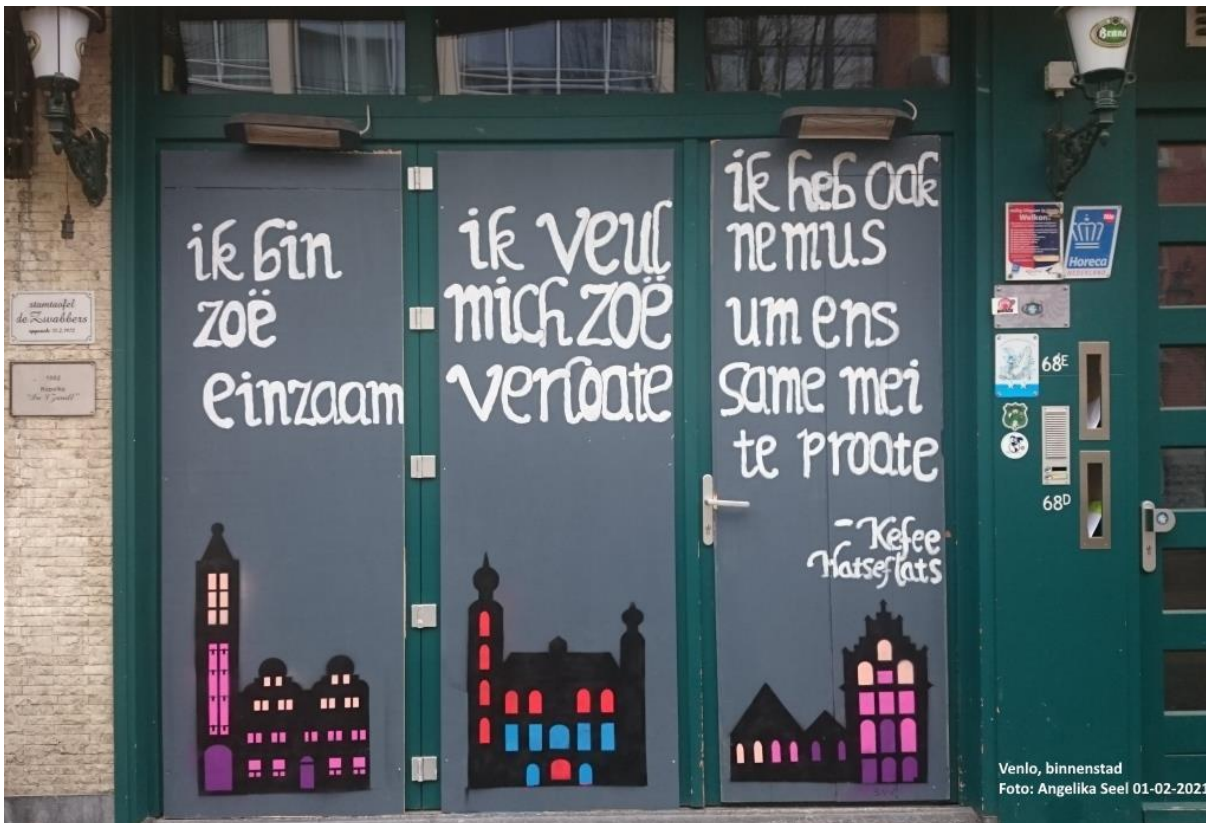 ik bin
zoë
einzaam
ik veul
mich zoë
verloate
ik heb oak
nemus
um ens
same mei
te proate
- Kefee
Hatseflats
stamtafel
de Zwabbers
Brand
Welkom!
Horeca
NEDERLAND
68E
68D
Venlo, binnenstad
Foto: Angelika Seel 01-02-2021